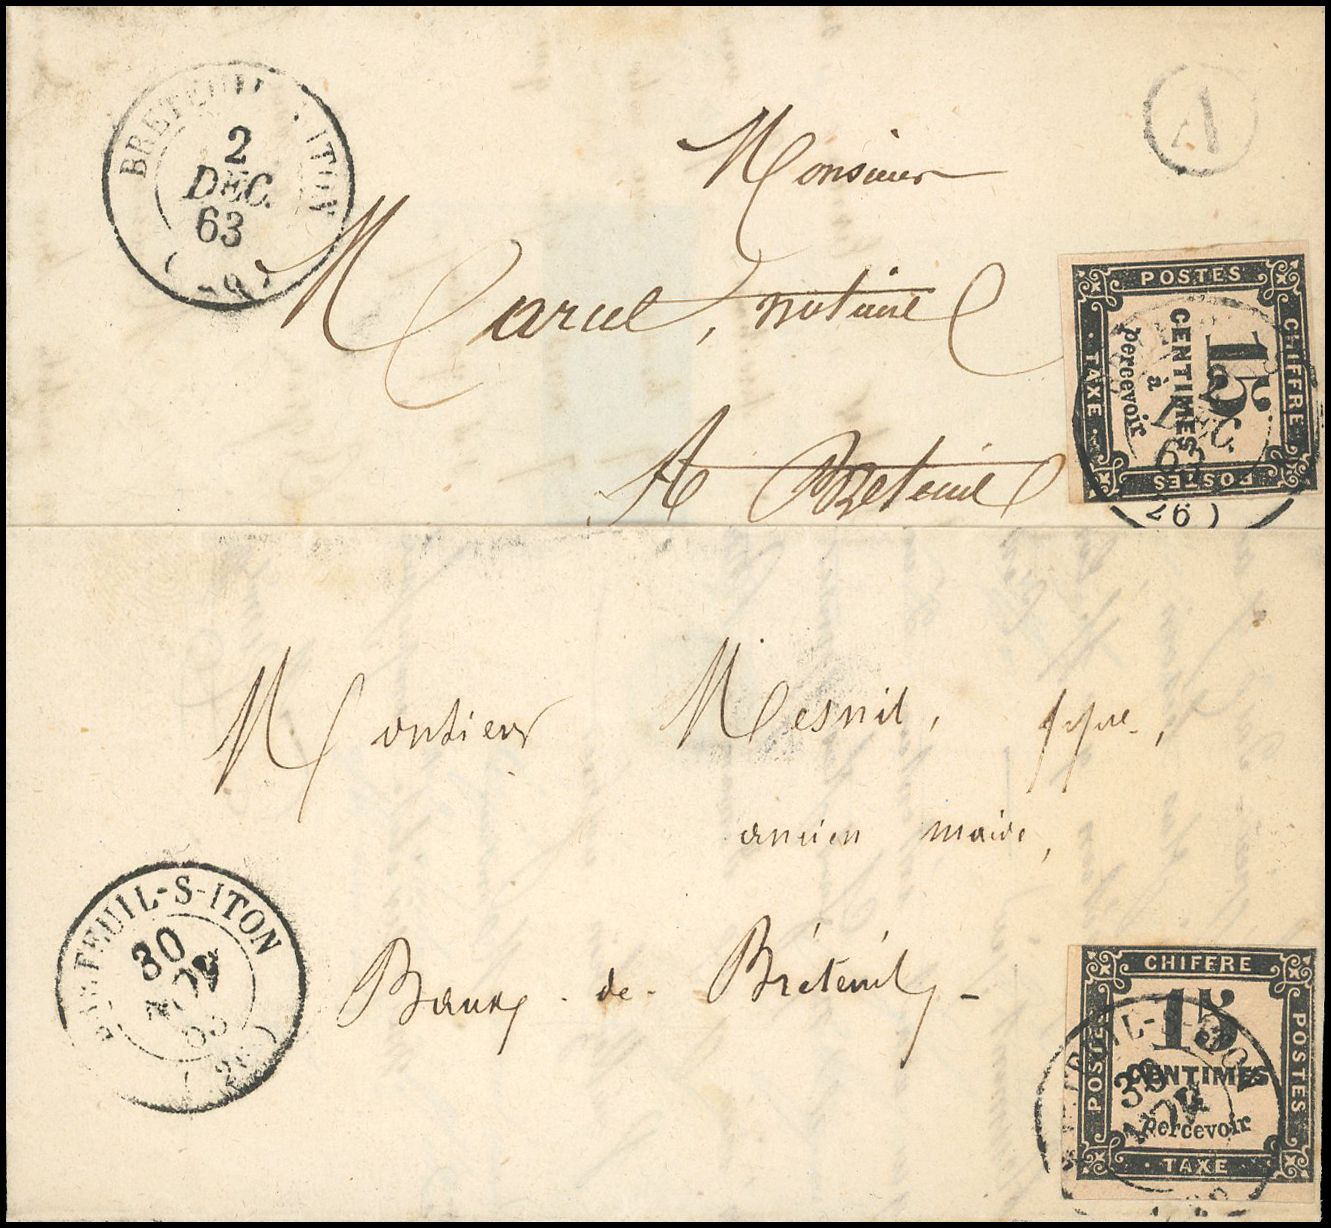 BRETEUIL ITON
2
DEC.
63
A
Monsieur
Marcel, notaire
A Breteuil
POSTES
CHIFFRE
TAXE
POSTES
15
CENTIMES
à
percevoir
2
DEC.
63
26 )
Monsieur Mesnil,
ancien maire,
Bourg de Breteuil
BRETEUIL-S-ITON
30
NOV
63
( 26 )
CHIFFRE
POSTES
POSTES
TAXE
15
CENTIMES
percevoir
30
NOV